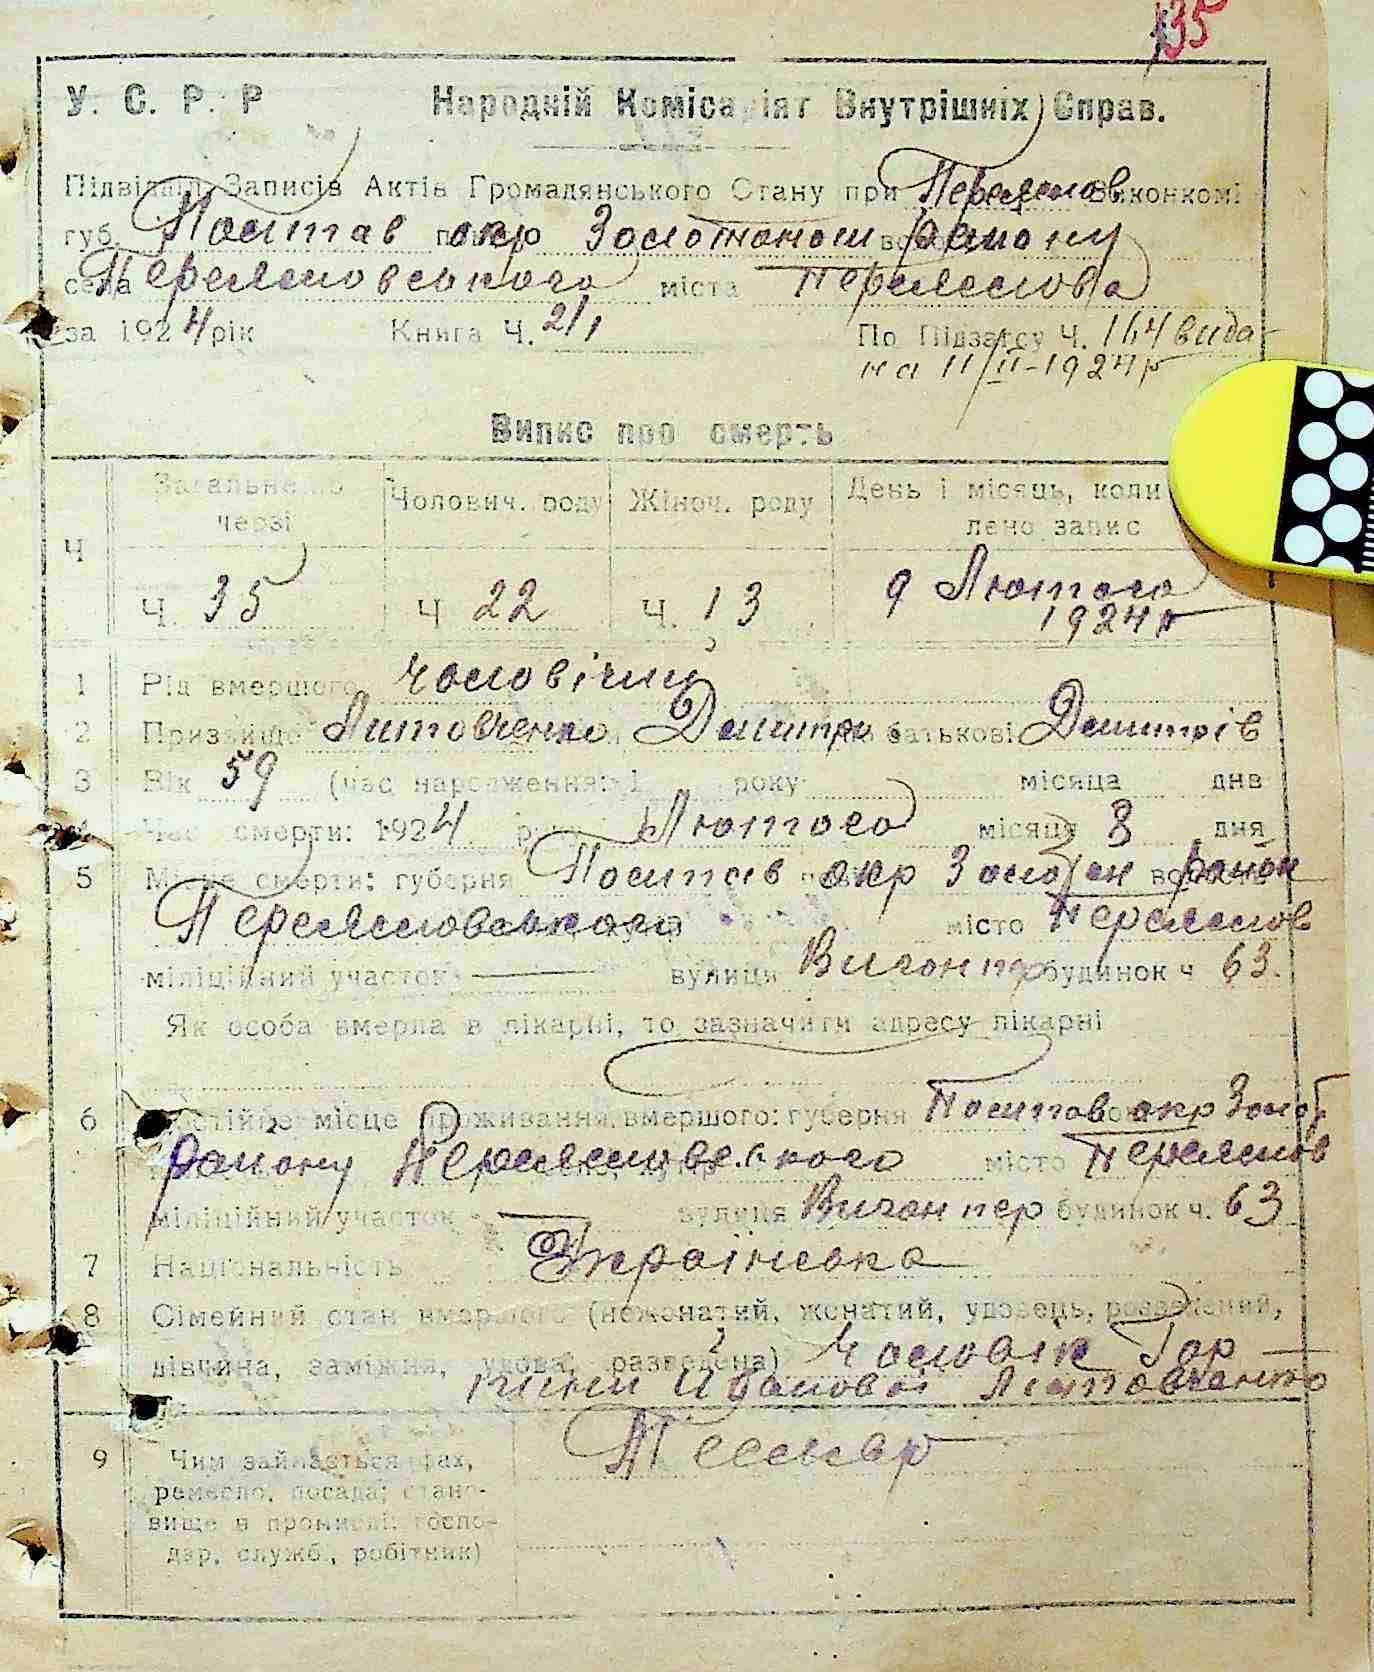 135
У. С. Р. Р Народній Комісаріят Внутрішніх Справ.
Підвідділ Записів Актів Громадянського Стану при Переяслов Виконкомі
губ. Полтав окр Золотонош району
села Переясловського міста Переяслова
за 1924 рік Книга Ч. 2/1 По Підзагсу Ч. 164 вида
на 11/II-1924 р
Випис про смерть
Ч Загальне по черзі Чолович. роду Жіноч. роду День і місяць, коли
лено запис
Ч. 35 Ч 22 Ч. 13 9 Лютого
1924 р
1 Рід вмершого чоловічий
2 Призвище Литовченко Дмитро по батькові Дмитрів
3 Вік 59 (час народження: 1 року місяця дня
4 Час смерти: 1924 року Лютого місяця 8 дня
5 Місце смерти: губерня Полтав окр Золотон район
Переясловського місто Переяслов
міліційний участок вулиця Вигон пер будинок ч 63.
Як особа вмерла в лікарні, то зазначити адресу лікарні
6 Постійне місце проживання вмершого: губерня Полтав окр Золот
району Переясловського місто Переяслов
міліційний участок вулиця Вигон пер будинок ч. 63
7 Національність Українська
8 Сімейний стан вмершого (нежонатий, жонатий, удовець, розведений,
дівчина, заміжня, удова, разведена) Чоловік Гор
пини Ивановой Литовченко
9 Чим займається фах,
ремесло, посада; стано-
вище в промислі: госпо-
дар, служб., робітник)